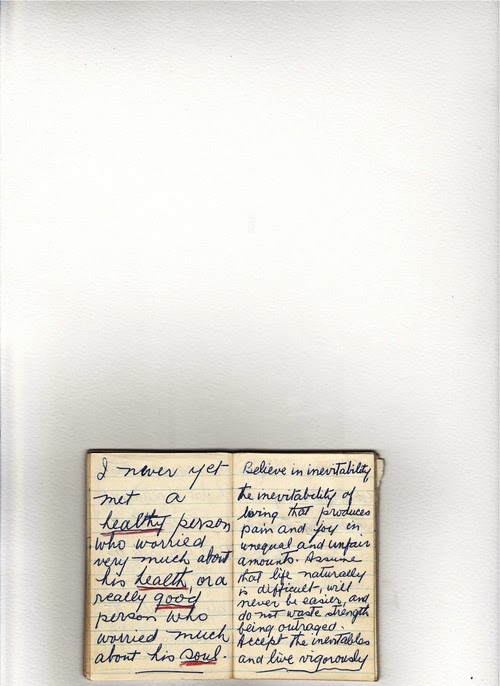 I never yet
met a
healthy person
who worried
very much about
his health, or a
really good
person who
worried much
about his soul.
Believe in inevitability
the inevitability of
loving that produces
pain and joy in
unequal and unfair
amounts. Assume
that life naturally
is difficult, will
never be easier, and
do not waste strength
being outraged.
Accept the inevitables
and live vigorously